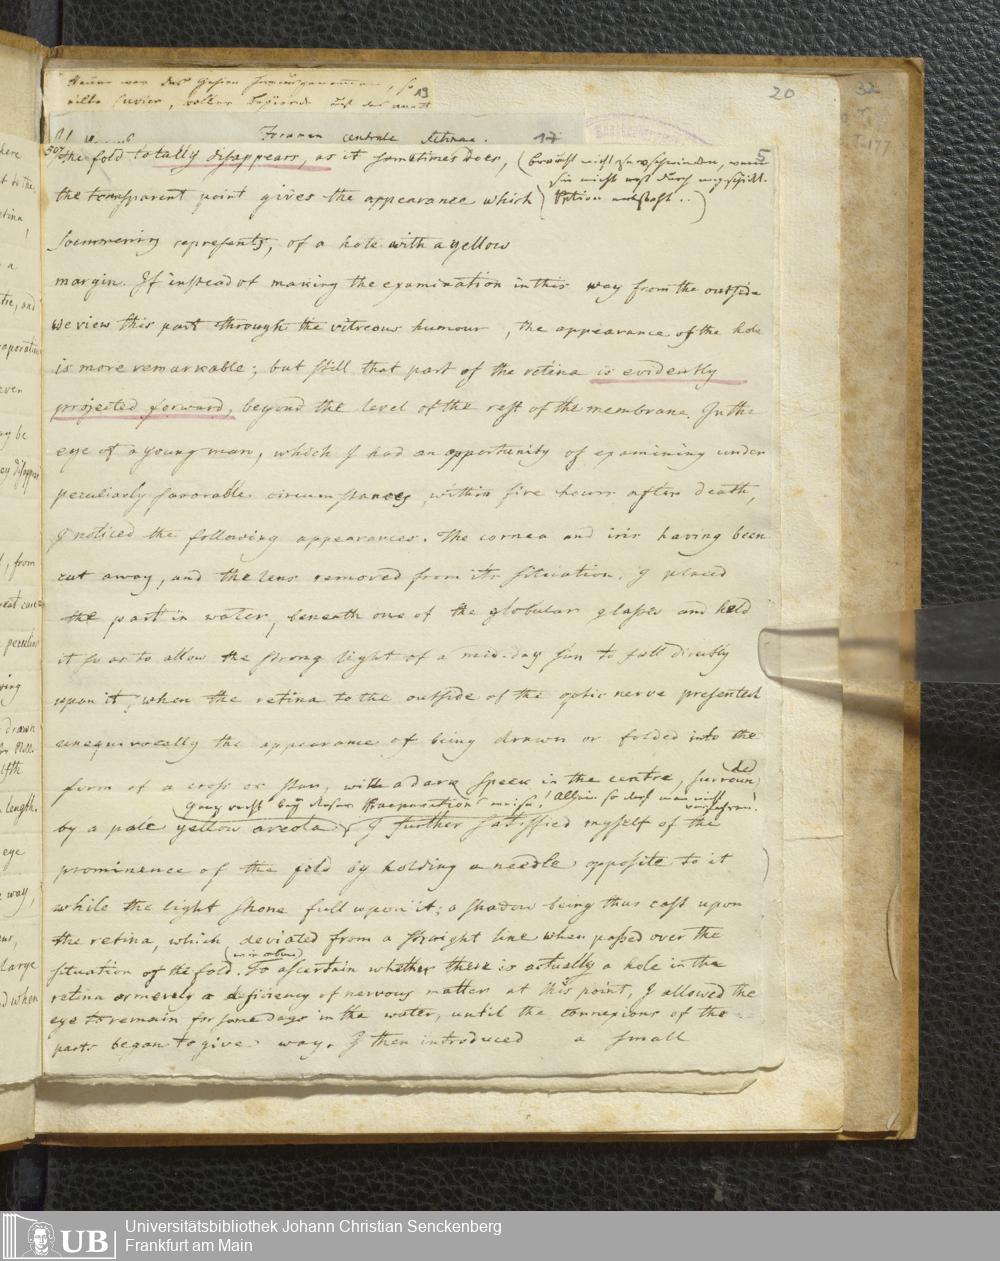 13
20
32
Foramen centrale Retinae. 17
507 5
the fold totally disappears, as it sometimes does,
the transparent point gives the appearance which
Soemmering represents, of a hole with a yellow
margin. If instead of making the examination in this way from the outside
we view this part through the vitreous humour, the appearance of the hole
is more remarkable; but still that part of the retina is evidently
projected forward, beyond the level of the rest of the membrane. In the
eye of a young man, which I had an opportunity of examining under
peculiarly favorable circumstances, within five hours after death,
I noticed the following appearances. The cornea and iris having been
cut away, and the lens removed from its situation, I placed
the part in water, beneath one of the globular glasses and held
it so as to allow the strong light of a mid-day sun to fall directly
upon it, when the retina to the outside of the optic nerve presented
unequivocally the appearance of being drawn or folded into the
form of a cross or star, with a dark speck in the centre, surrounded
by a pale yellow areola. I further satisfied myself of the
prominence of the fold by holding a needle opposite to it
while the light shone full upon it; a shadow being thus cast upon
the retina, which deviated from a straight line when passed over the
situation of the fold. To ascertain whether there is actually a hole in the
retina or merely a deficiency of nervous matter at this point, I allowed the
eye to remain for some days in the water, until the connexions of the
parts began to give way. I then introduced a small
UB
Universitätsbibliothek Johann Christian Senckenberg
Frankfurt am Main